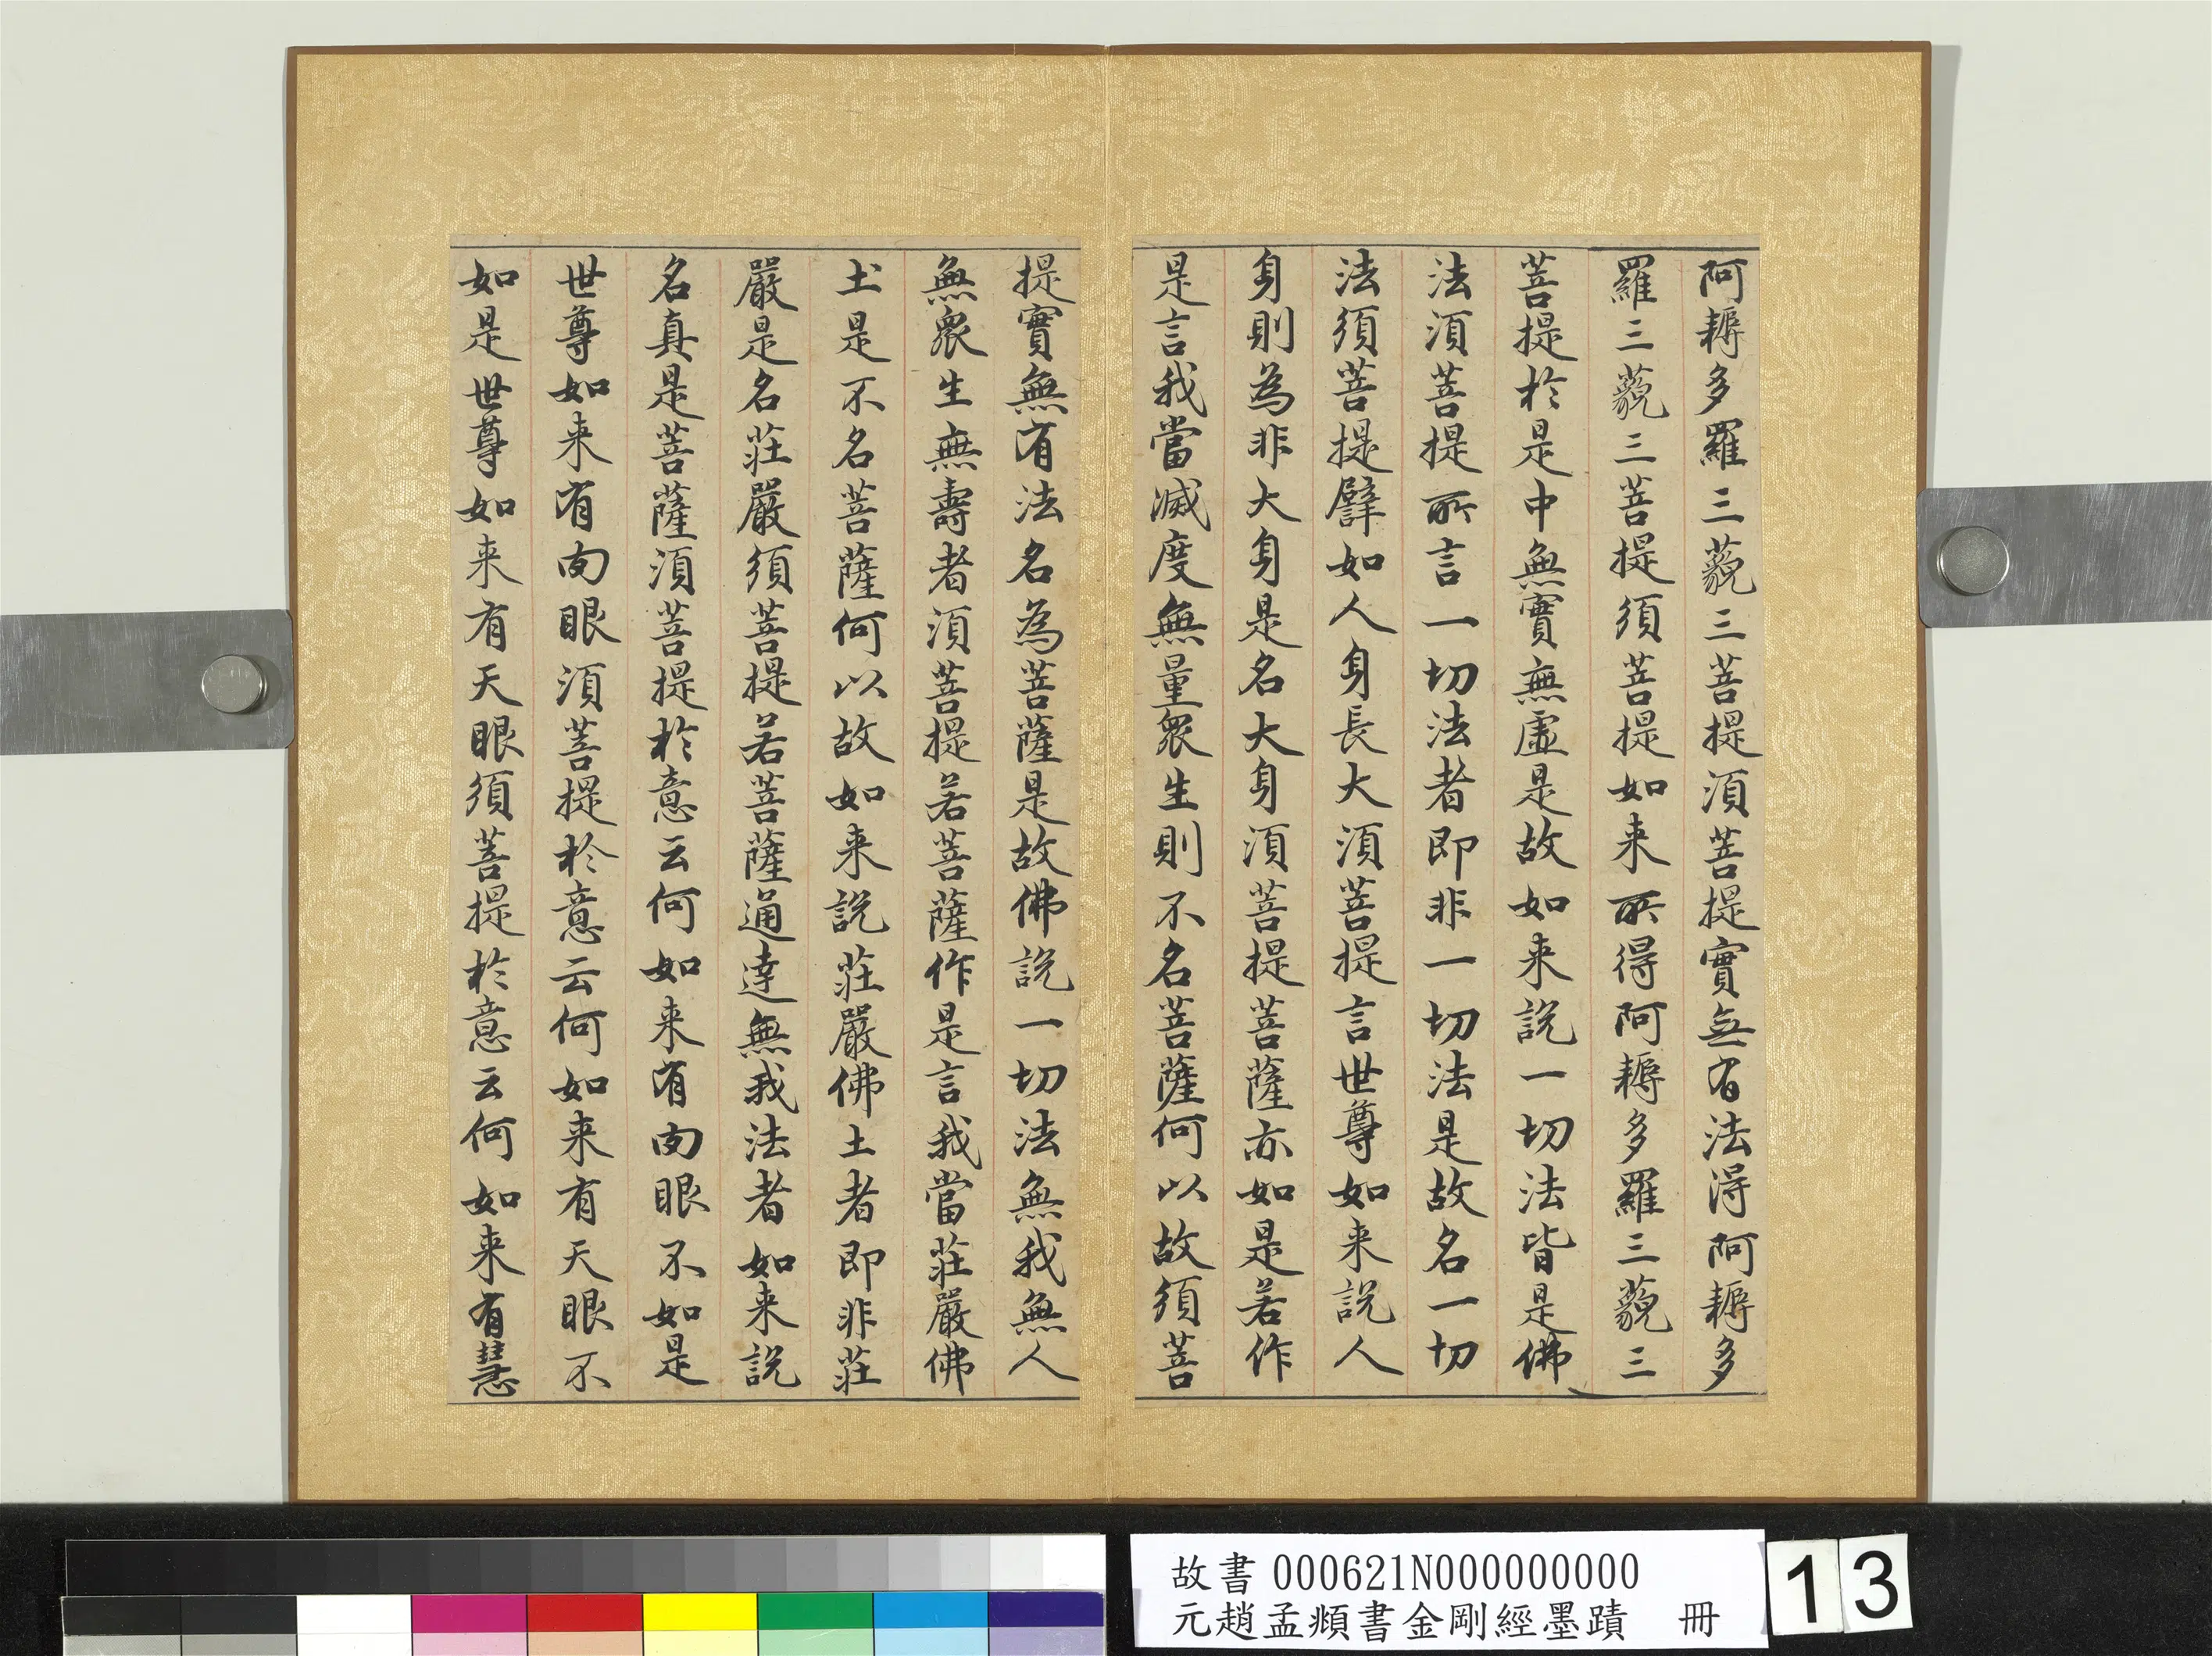 阿耨多羅三藐三菩提須菩提實無有法得阿耨多
羅三藐三菩提須菩提如来所得阿耨多羅三藐三
菩提於是中無實無虛是故如来說一切法皆是佛
法須菩提所言一切法者即非一切法是故名一切
法須菩提譬如人身長大須菩提言世尊如来說人
身則為非大身是名大身須菩提菩薩亦如是若作
是言我當滅度無量眾生則不名菩薩何以故須菩
提實無有法名為菩薩是故佛說一切法無我無人
無眾生無壽者須菩提若菩薩作是言我當莊嚴佛
土是不名菩薩何以故如来說莊嚴佛土者即非莊
嚴是名莊嚴須菩提若菩薩通達無我法者如来說
名真是菩薩須菩提於意云何如来有肉眼不如是
世尊如来有肉眼須菩提於意云何如来有天眼不
如是世尊如来有天眼須菩提於意云何如来有慧
故書 000621N000000000
元趙孟頫書金剛經墨蹟 冊
13